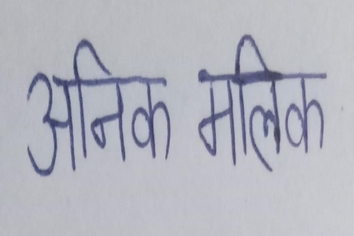 अनिक मलिक